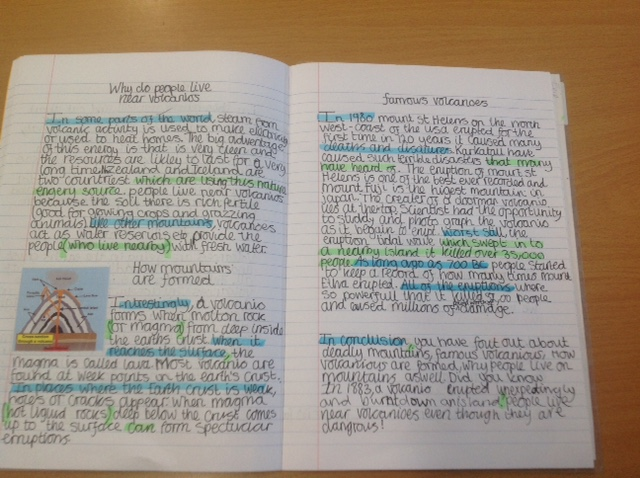 Why do people live
near volcanios
In some parts of the world, steam from
volcanic activity is used to make electricity
or used to heat homes. The big advantage
of this energy is that is very clean and
the resources are likley to last for a very
long time. Zealand and Iceland are
two countriest which are using this nature
engery source. people live near volcanios
because the soil there is rich fertile
(good for growing crops and grazzing
animals). like other mountains, volcanoes
act as water etc provide the
people (who live nearby) with fresh water.
How mountains
are formed
Interestingly, a volcanio
forms where molton rock
(or magma) from deep inside
the earths crust. when it
reaches the surface, the
magma is called lava. Most volcanio are
found at week points on the earth's crust.
In places where the Earth crust is weak,
holels or cracks appear when magma
(hot liquid rocks) deep below the crust comes
up to the surface can form spectucular
eruptions.
famous volcanoes
In 1980 mount st Helens on the north
west-coast of the usa erupted for the
first time in 120 years it caused many
deaths and disatures. have
caused such terrible disasters that many
have heard of. The eruption of mount st
Helens is one of the best ever recorded and
mount fuji is the highest mountain in
Japan. The creater of a doorman volcanio
lies at the top. Scientist had the opportunity
to studdy and photo graph the volcanio
as it begain to erupt. worst still the
eruption tidal wave which swept in to
a nearby island it killed over 35,000
people. As long ago as 700 BC people started
to keep a record of how many times mount
Etna erupted. All of the eruptions where
so powerfull that it killed people
and caused millions of damage.
In conclusion, you have fout out about
deadly mountains, famous volcanious. How
volcanioys are formed, why people live on
mountains aswell. Did you know
In 1883, a volcanio erupted unexpedingly
and burnt down an island, people life
near volcanoes even though they are
dangrous!